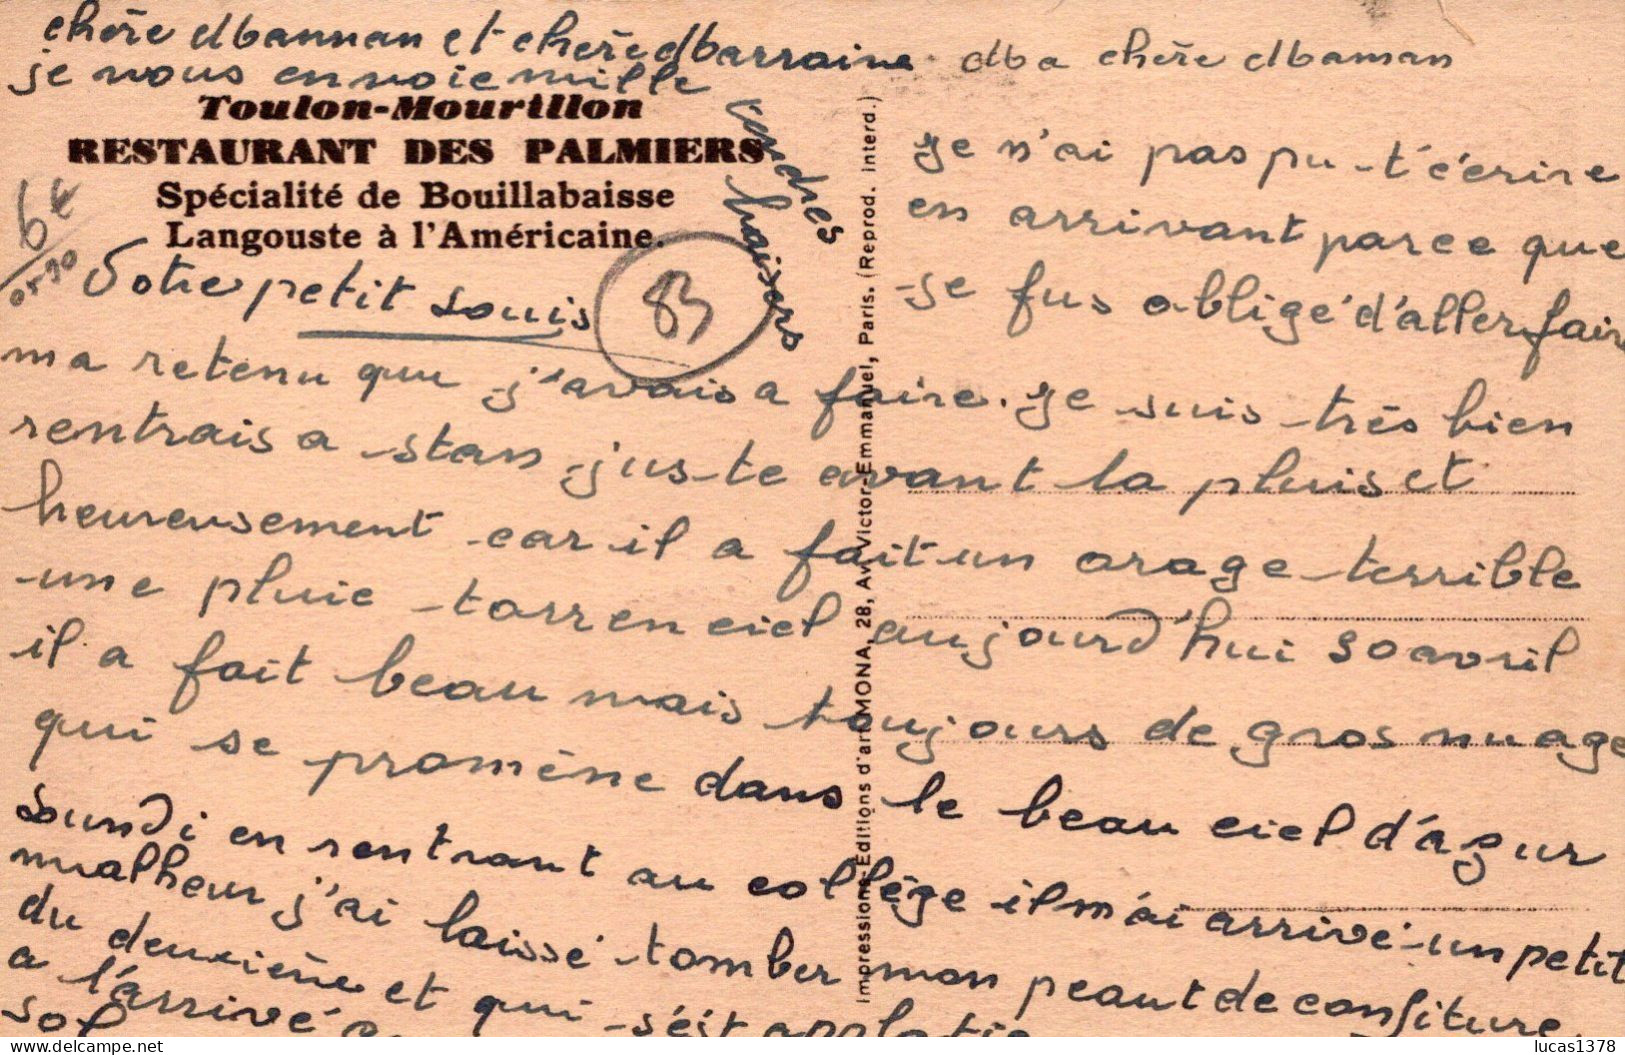 Ma chère Maman
Je n'ai pas pu t'écrire
en arrivant parce que
je fus obligé d'aller fair
ma retenu que j'avais a faire. Je suis très bien
rentrais a stan juste avant la pluis et
heureusement car il a fait un orage terrible
une pluie torrenciel aujourd'hui 30 avril
il a fait beau mais toujours de gros nuage
qui se promène dans le beau ciel d'azur
Lundi en rentrant au collège il m'ai arrivé un petit
malheur j'ai laissé tomber mon peaut de confiture
du deuxième et qui s'ést applatie
a l'arrivé
sol
chère Maman et chère Marraine
je vous envoie mille
tendres
baisers
Votre petit Louis
Toulon-Mourillon
RESTAURANT DES PALMIERS
Spécialité de Bouillabaisse
Langouste à l'Américaine.
6€
83
Impressions-Editions d'art MONA, 28, Av. Victor-Emmanuel, Paris. (Reprod. interd.)
lucas1378